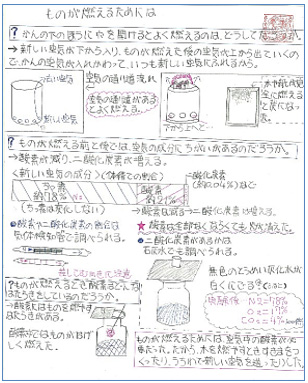 ものが燃えるためには
? かんの下のほうに穴を開けるとよく燃えるのは、どうしてだろうか。
→新しい空気が下から入り、ものが燃えた後の空気は上から出ていくので、かんの空気が入れかわって、いつも新しい空気にふれるから。
古い空気
新しい空気
空気の通り道
空気の通り道があるとよく燃える。
下から上へ
? ものが燃える前と後では、空気の成分にちがいがあるだろうか。
→酸素が減り、二酸化炭素が増える。
〈新しい空気の成分〉(体積での割合)
ちっ素
約78%
酸素
約21%
二酸化炭素
(約0.04%)など
(ちっ素は変化しない)
→酸素は減る→二酸化炭素は増える。
●酸素や二酸化炭素の割合は気体検知管で調べられる。
★酸素は全部なくならなくても火が消える。
●二酸化炭素があるかは石灰水でも調べられる。
無色のとうめい石灰水が白くにごる
実験後
N2=78%
O2=17%
CO2=4%
? ものが燃えるとき酸素はどんなはたらきをしているのだろうか。
→酸素にはものを燃やすはたらきがある。
酸素中ではものがはげしく燃えた。
ものが燃えるためには、空気中の酸素が必要だった。だから、木を燃やすときはすきまをつくったり、うちわで新しい空気を送ったりした。